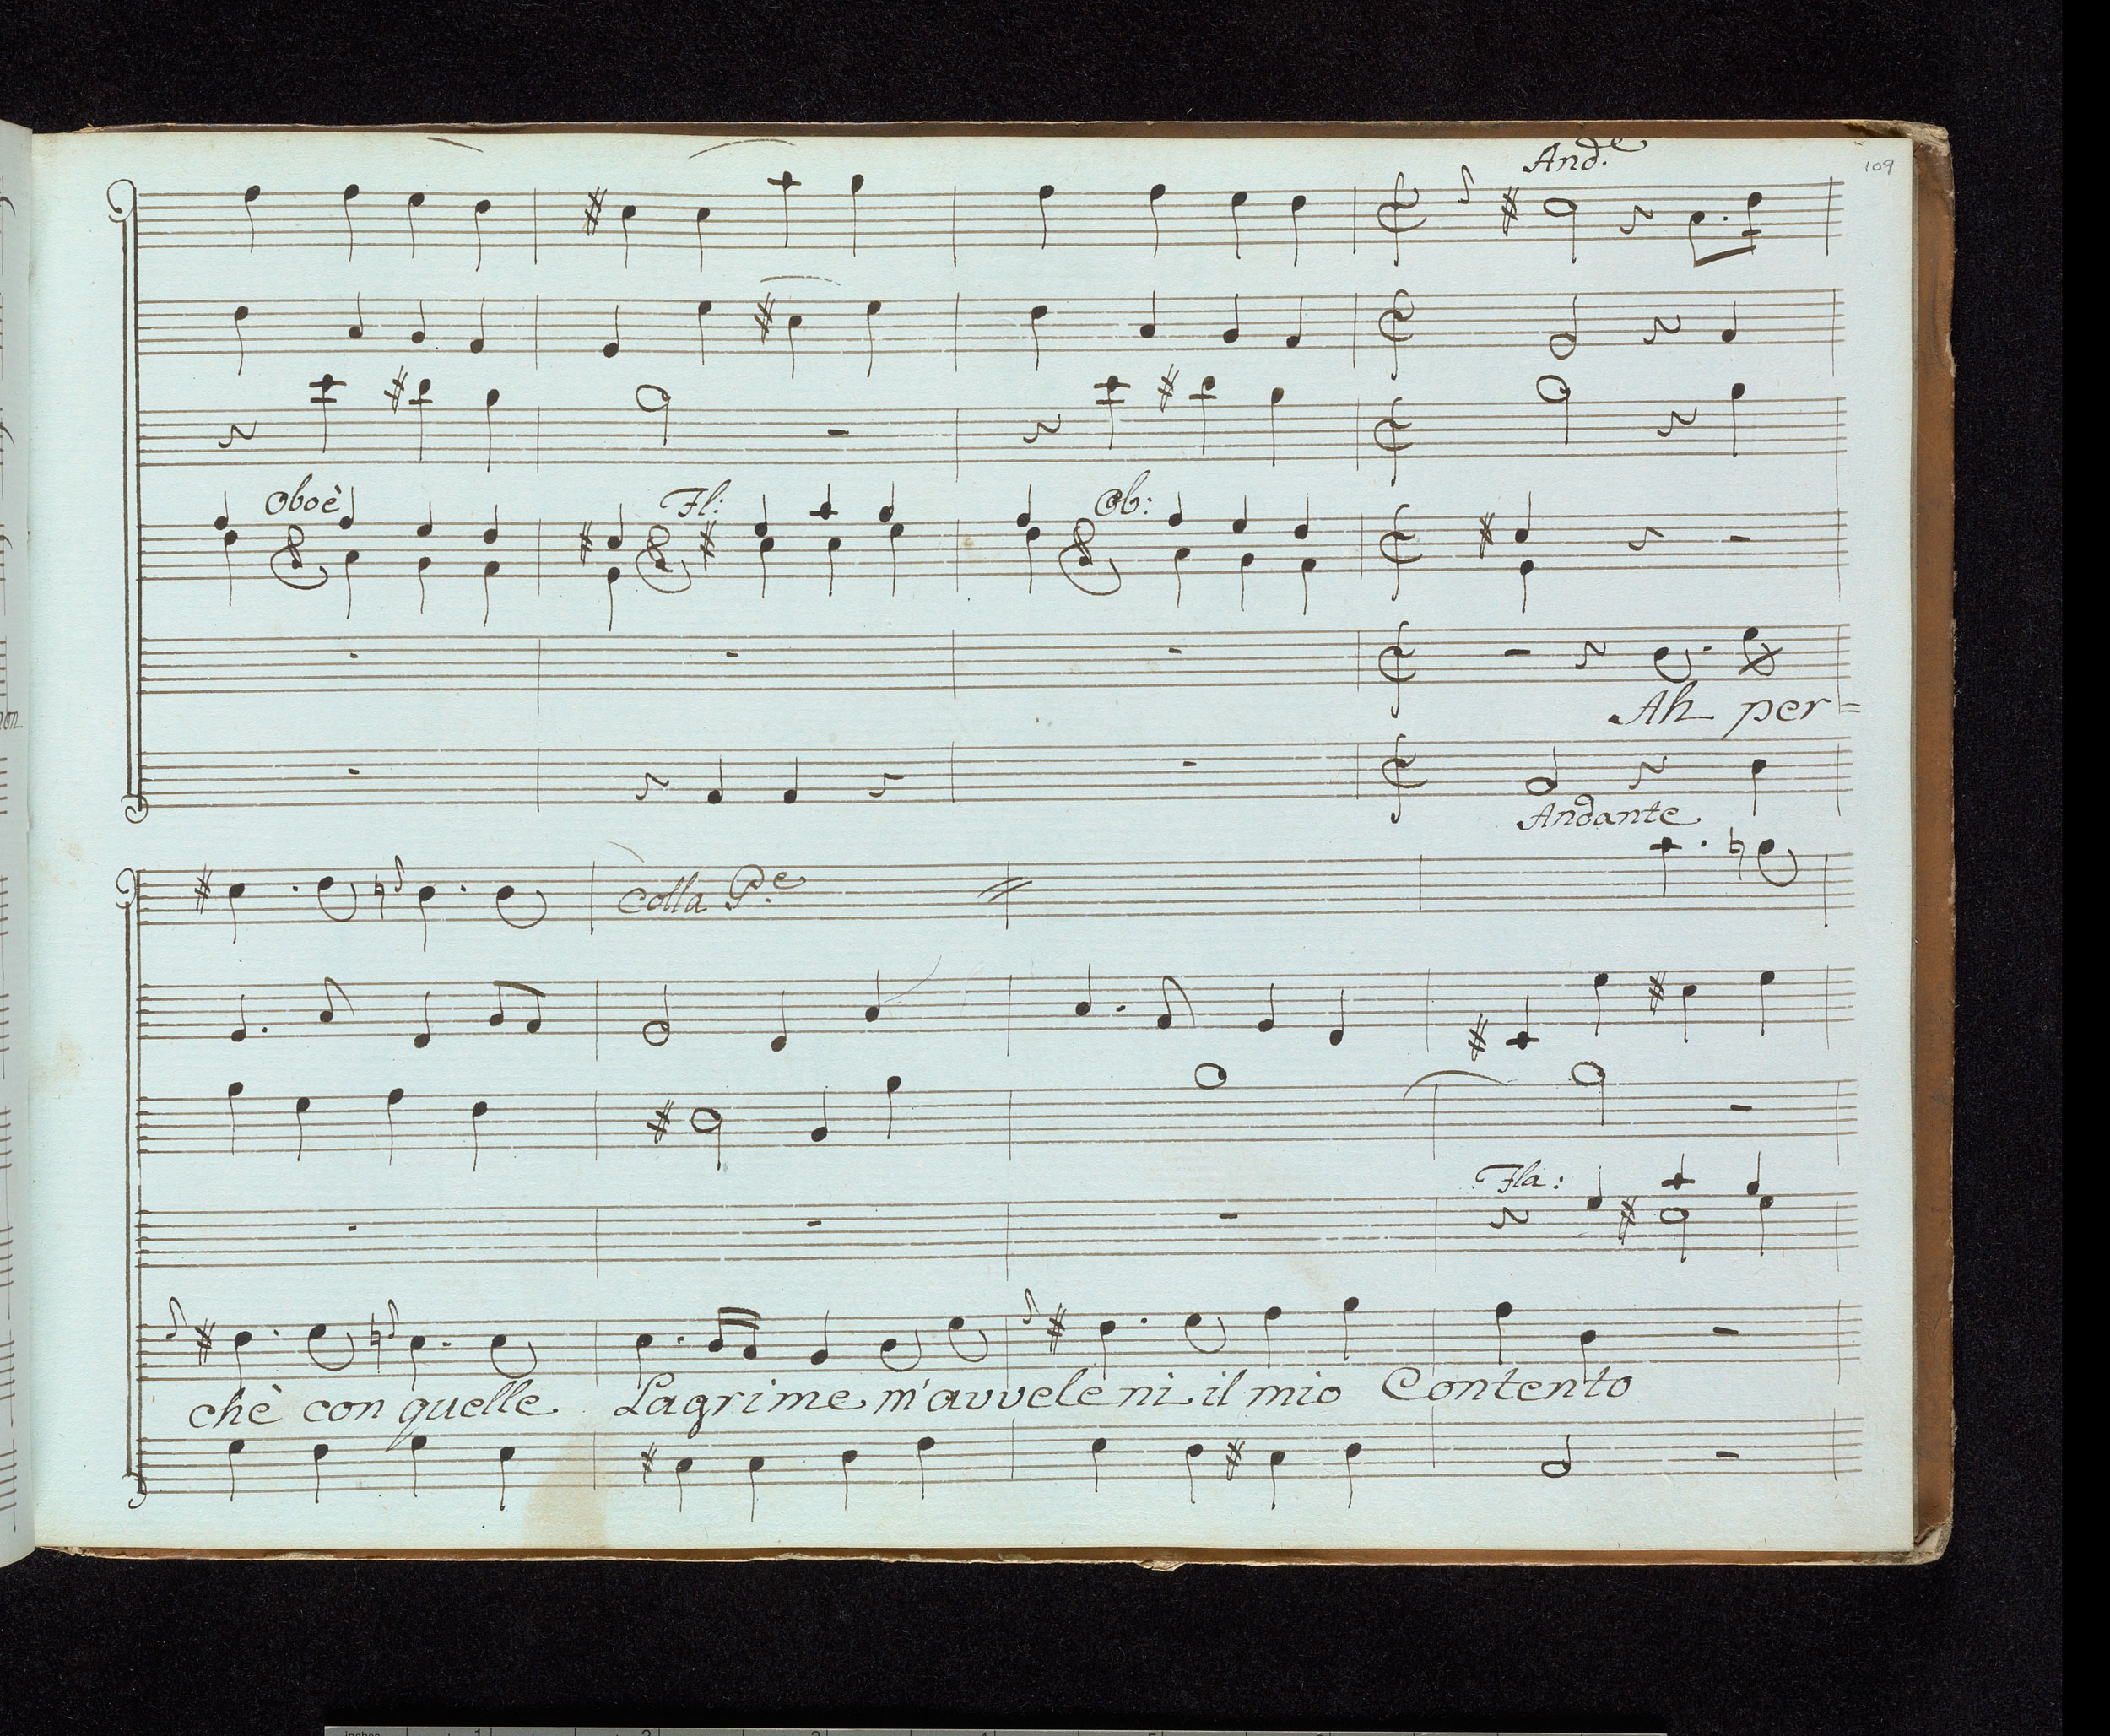 And.e
109
Oboè Fl: Ob:
Ah per=
Andante
Colla P.e
Fla:
chè con quelle Lagrime m'avveleni il mio Contento
inches 1 2 3 4 5